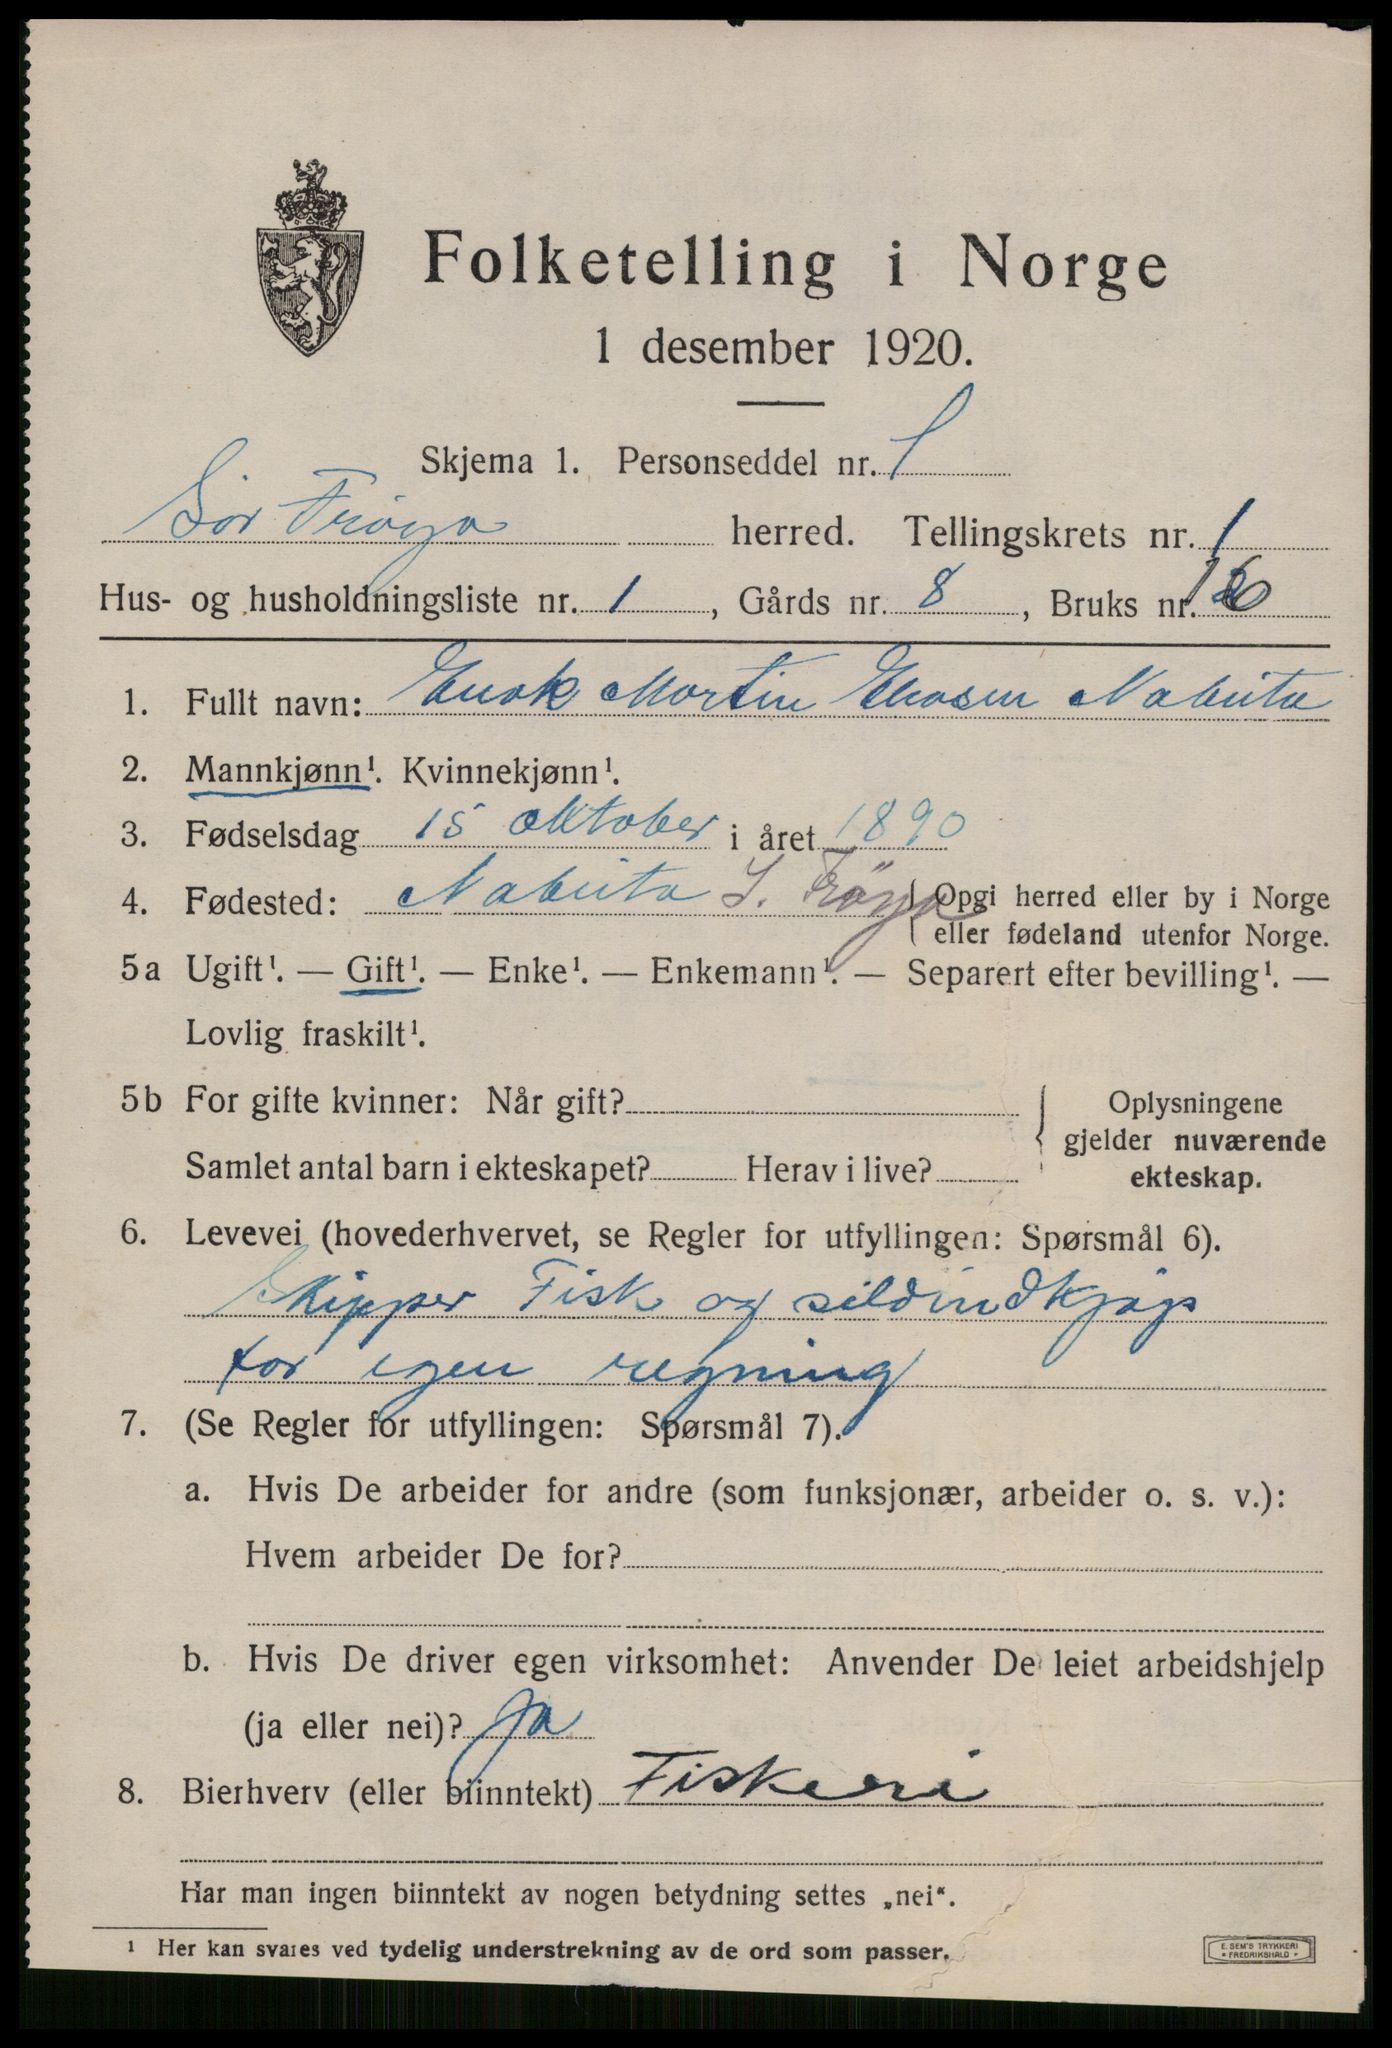 Folketelling i Norge
1 desember 1920.
Skjema 1. Personseddel nr. 1
Sör Fröya herred. Tellingskrets nr. 1
Hus- og husholdningsliste nr. 1, Gårds nr. 8, Bruks nr.
1. Fullt navn: Enok Martin Nabeita
2. Mannkjønn¹. Kvinnekjønn¹.
3. Fødselsdag 15 oktober i året 1890
4. Fødested: Nabeita S. Fröya { Opgi herred eller by i Norge
eller fødeland utenfor Norge.
5a Ugift¹. — Gift¹. — Enke¹. — Enkemann¹. — Separert efter bevilling¹. —
Lovlig fraskilt¹.
5b For gifte kvinner: Når gift?
Samlet antal barn i ekteskapet? Herav i live?
Oplysningene
gjelder nuværende
ekteskap.
6. Levevei (hovederhvervet, se Regler for utfyllingen: Spørsmål 6).
Skipper Fisk og sildindkjøp
for egen regning
7. (Se Regler for utfyllingen: Spørsmål 7).
a. Hvis De arbeider for andre (som funksjonær, arbeider o. s. v.):
Hvem arbeider De for?
b. Hvis De driver egen virksomhet: Anvender De leiet arbeidshjelp
(ja eller nei)? Ja
8. Bierhverv (eller biinntekt) Fiskeri
Har man ingen biinntekt av nogen betydning settes „nei“.
¹ Her kan svares ved tydelig understrekning av de ord som passer.
E. SEM'S TRYKKERI
• FREDRIKSHALD •